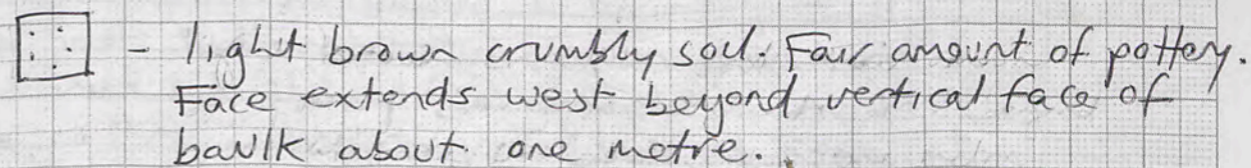 - light brown crumbly soil. Fair amount of pottery.
Face extends west beyond vertical face of
baulk about one metre.